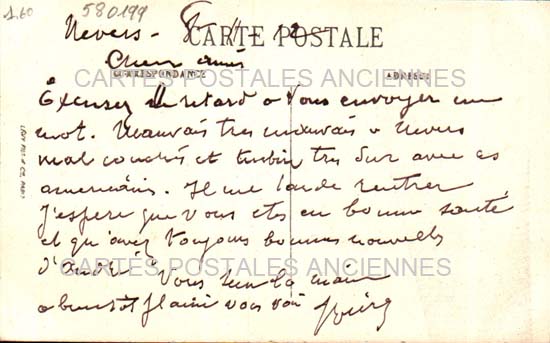 1.60
580199
Nevers - 8 - 11 - 12
CARTE POSTALE
Chers amis
CORRESPONDANCE
ADRESSE
CARTES POSTALES ANCIENNES
Excusez du retard a vous envoyer un
mot. Mauvais tres mauvais a Nevers
mal couchés et turbin tres dur avec ces
americains. Il me tarde rentrer
J'espere que vous etes en bonne santé
et qu'avez toujours bonnes nouvelles
d'André. Vous serre la main
CARTES POSTALES ANCIENNES
a bientot plaisir vous voir